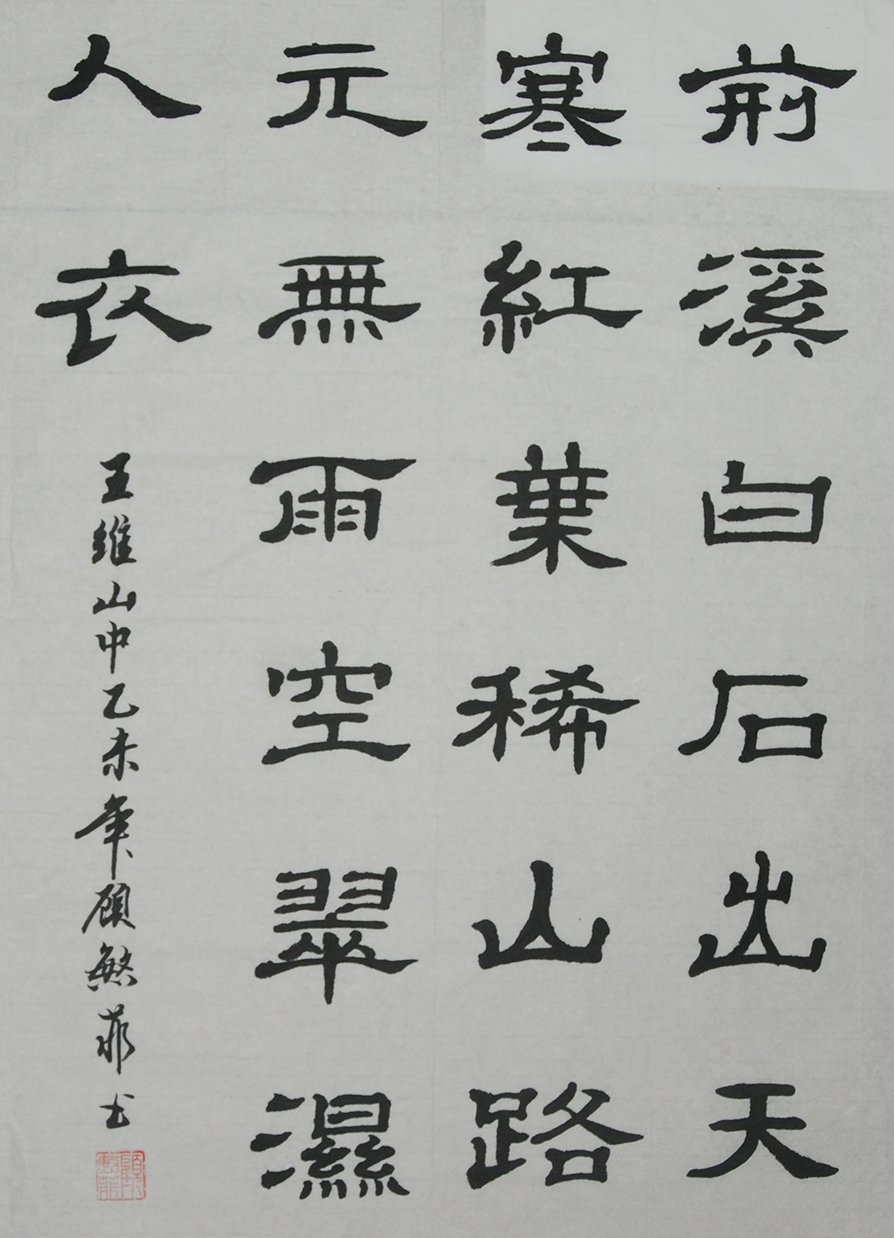 荊溪白石出天
寒紅葉稀山路
元無雨空翠濕
人衣
王維山中乙未年顾敏菲书